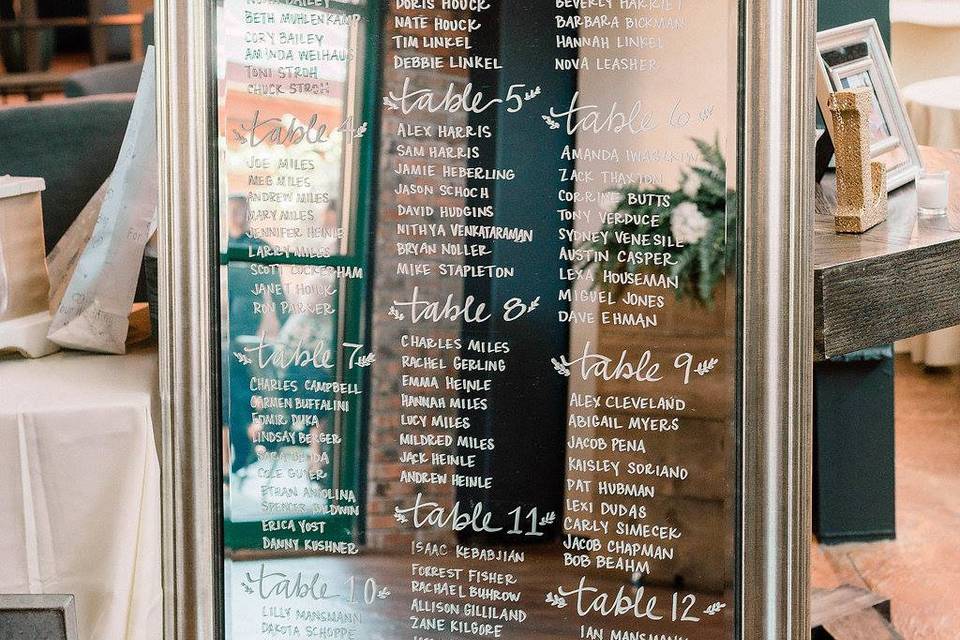 BETH MUHLENKAMP
CORY BAILEY
AMANDA WEIHAUS
TONI STROH
CHUCK STROH
DORIS HOUCK
NATE HOUCK
TIM LINKEL
DEBBIE LINKEL
BEVERLY HARRIET
BARBARA BICKMAN
HANNAH LINKEL
NOVA LEASHER
table 4
JOE MILES
MEG MILES
ANDREW MILES
MARY MILES
JENNIFER HEINLE
LARRY MILES
SCOTT COCKERHAM
JANET HOUCK
RON PARKER
table 5
ALEX HARRIS
SAM HARRIS
JAMIE HEBERLING
JASON SCHOCH
DAVID HUDGINS
NITHYA VENKATARAMAN
BRYAN NOLLER
MIKE STAPLETON
table 6
AMANDA
ZACK THAXTON
CORRINE BUTTS
TONY VERDUCE
SYDNEY VENESILE
AUSTIN CASPER
LEXA HOUSEMAN
MIGUEL JONES
DAVE EHMAN
table 7
CHARLES CAMPBELL
CARMEN BUFFALINI
EDMIR DUKA
LINDSAY BERGER
COLE
ETHAN ANIOLINA
SPENCER BALDWIN
ERICA YOST
DANNY KUSHNER
table 8
CHARLES MILES
RACHEL GERLING
EMMA HEINLE
HANNAH MILES
LUCY MILES
MILDRED MILES
JACK HEINLE
ANDREW HEINLE
table 9
ALEX CLEVELAND
ABIGAIL MYERS
JACOB PENA
KAISLEY SORIANO
PAT HUBMAN
LEXI DUDAS
CARLY SIMECEK
JACOB CHAPMAN
BOB BEAHM
table 10
LILLY MANSMANN
DAKOTA SCHOPPE
table 11
ISAAC KEBABJIAN
FORREST FISHER
RACHAEL BUHROW
ALLISON GILLILAND
ZANE KILGORE
table 12
IAN MANSMANN